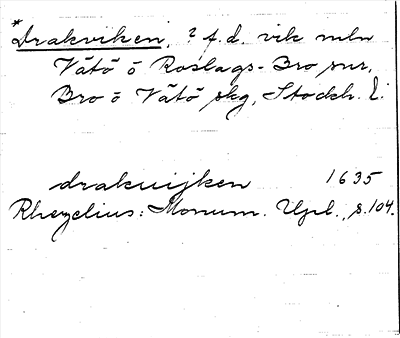 *Drakviken, ? f. d. vik mln
Vätö o Roslags-Bro snr,
Bro o Vätö skg, Stockh. l.
drakuijken 1635
Rhezelius: Monum. Upl., s. 104.